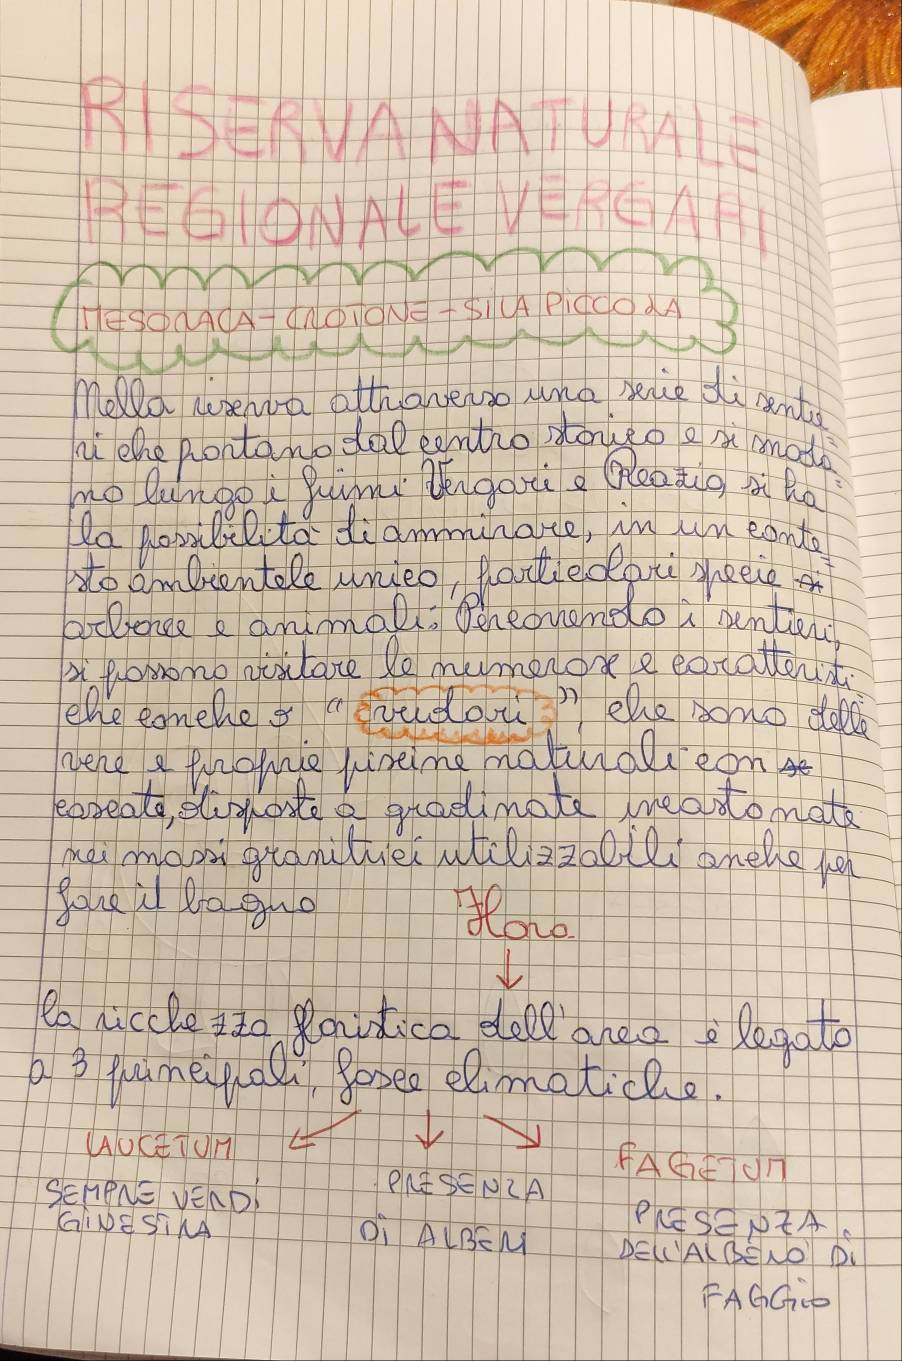 RISERVA NATURALE
REGIONALE VERGARI
MESORACA - CROTONE - SILA PICCOLA
Nella riserva attraverso una serie di sentie
ri che portano dal centro storico e si snoda
no lungo i fiumi Vergari e Reazio, si ha
la possibilità di ammirare, in un conte
sto ambientale unico, particolari specie
arboree e animali. Percorrendo i sentieri,
si possono visitare le numerose e caratteristi
che conche o "vurdoi", che sono delle
vere e proprie piscine naturali con
cascate, disposte a gradinate incastonate
nei massi granitici utilizzabili anche per
fare il bagno
Flora
la ricchezza floristica dell'area è legata
a 3 principali, fasce climatiche.
LAUCETUM
SEMPRE VERDI
GINESTRA
PRESENZA
DI ALBERI
FAGETUM
PRESENZA
DELL'ALBERO DI
FAGGIO